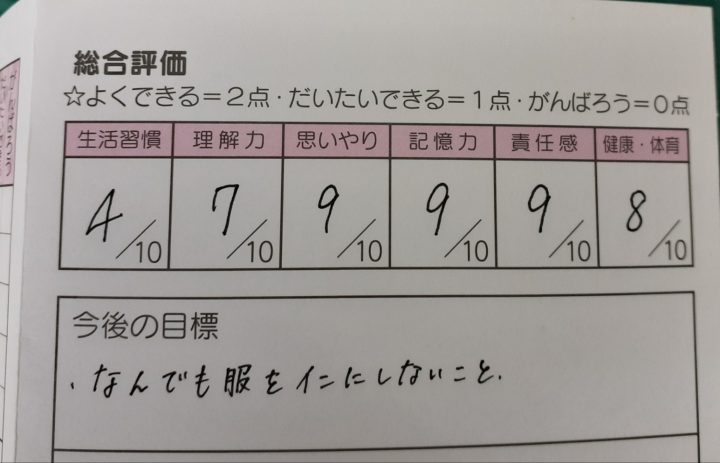 総合評価
☆よくできる＝2点・だいたいできる＝1点・がんばろう＝0点
生活習慣 理解力 思いやり 記憶力 責任感 健康・体育
4/10 7/10 9/10 9/10 9/10 8/10
今後の目標
・なんでも服をイニにしないこと.